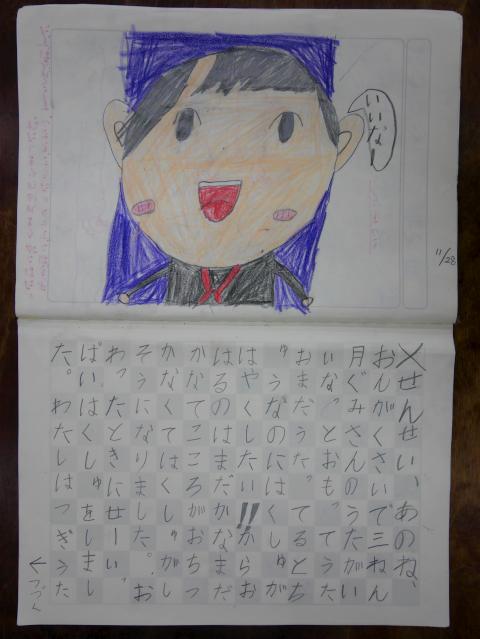 いいなー
11/28
×せんせい、あのね、
おんがくさいで三ねん
月ぐみさんのうたがい
いなっとおもってうた
おまだうたってるとち
ゅうなのにはくしゅが
はやくしたい!!からお
はるのはまだかなまだ
かなてこころがおちつ
かなくてはくしゅがし
そうになりました。お
わったときにせーいっ
ぱいはくしゅをしまし
た。わたしはつぎうた
←つづく